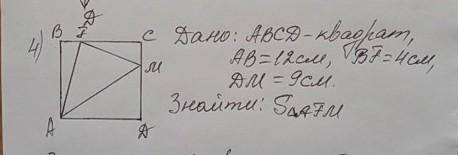 Д
4) B F C
M
A Д
Дано: ABCД-квадрат,
AB=12см, BF=4см,
ДM=9см.
Знайти: S△AFM